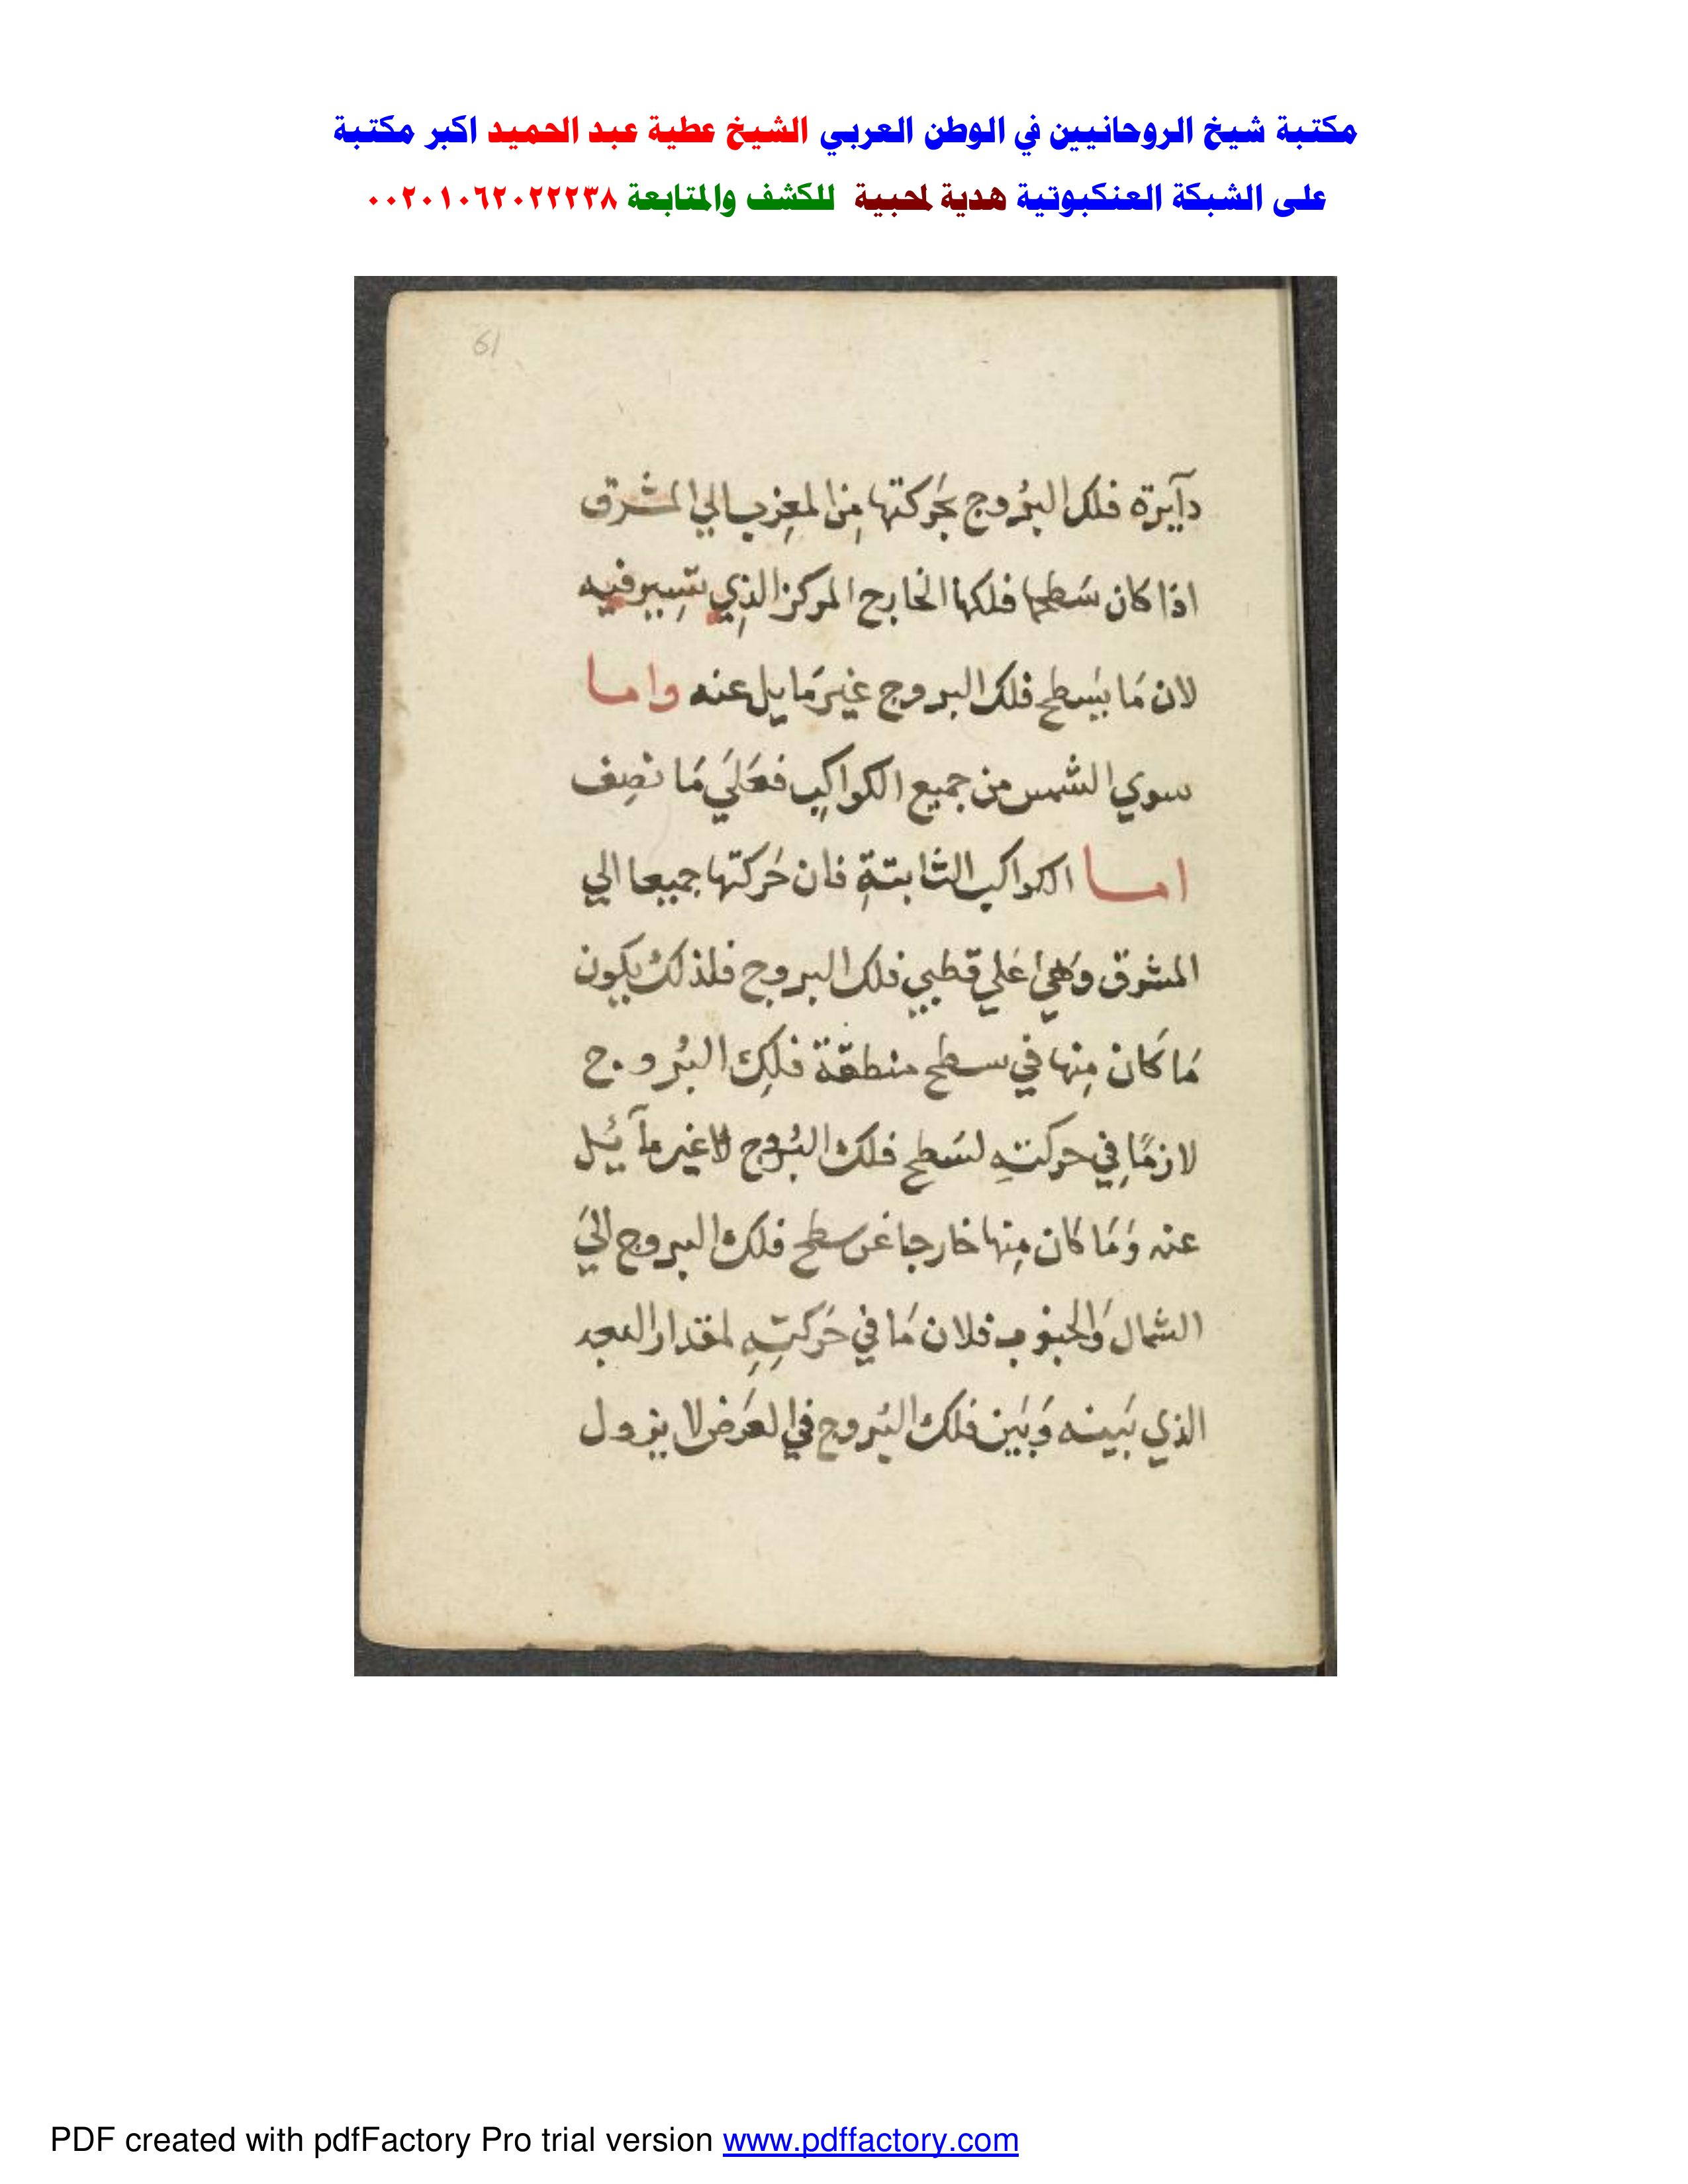 مكتبة شيخ الروحانيين في الوطن العربي الشيخ عطية عبد الحميد اكبر مكتبة
على الشبكة العنكبوتية هدية لمحبية للكشف والمتابعة ٠٠٢٠١٠٦٢٠٢٢٢٣٨
61
دآيرة فلك البُروج بحَركتها مِن المغرِب الي المشرق
اذا كان سَطحها فلكها الخارج المركز الذِي تسِير فيه
لان مَا بسَطح فلك البروج غير مَايل عنه واما
سوي الشمس من جميع الكواكِب فعَلَي مَا نصِف
اما الكواكب الثابتةِ فان حَركتها جميعا الي
المشرق وَهي اعَلي قطبي فلك البروج فلذلك يكون
مَا كَان مِنها في سطح منطقة فلكِ البُروج
لازمًا فِي حركتهِ لسَطح فلك البُروج لا غير مآئل
عنه وَمَا كَان مِنها خارجا عَن سطح فلك البروج اليَ
الشمال وَالجنوب فلان مَا في حَركتِهِ لمقدار البعد
الذي بَينه وَبَين فلك البُروج في العَرَض لا يزول
PDF created with pdfFactory Pro trial version www.pdffactory.com